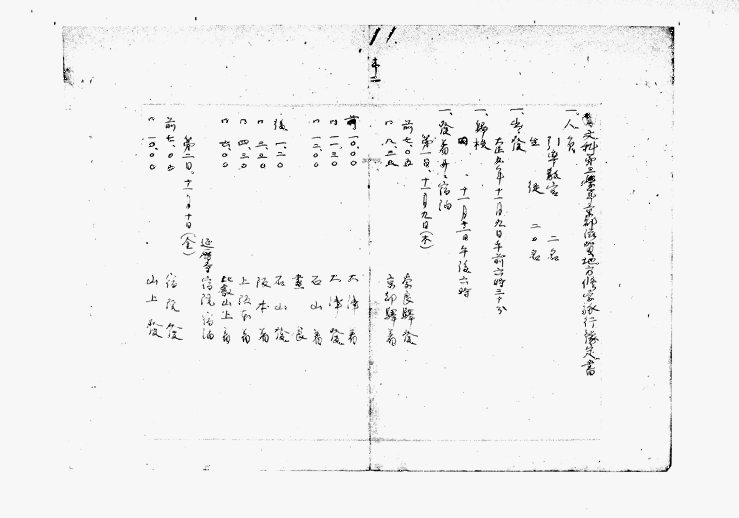 11
文科第三學年京都滋賀地方修學旅行豫定書
一、人員
引率教官 二名
生徒 二〇名
一、出發
大正五年十一月九日午前六時三十分
一、歸校
同 、十一月十二日午後六時
一、發着并ニ宿泊
第一日、十一月九日(木)
前七.〇五 奈良驛發
〃八.五五 京都驛着
前一〇.〇〇 大津着
〃一一.三〇 大津發
〃一二.〇〇 石山着
晝食
後一.二〇 石山發
〃三.二〇 阪本着
〃四.三〇 上阪本着
〃六.〇〇 比叡山上着
延曆寺宿院宿泊
第二日、十一月十日(金)
前七.〇〇 宿院發
〃一〇.〇〇 山上發